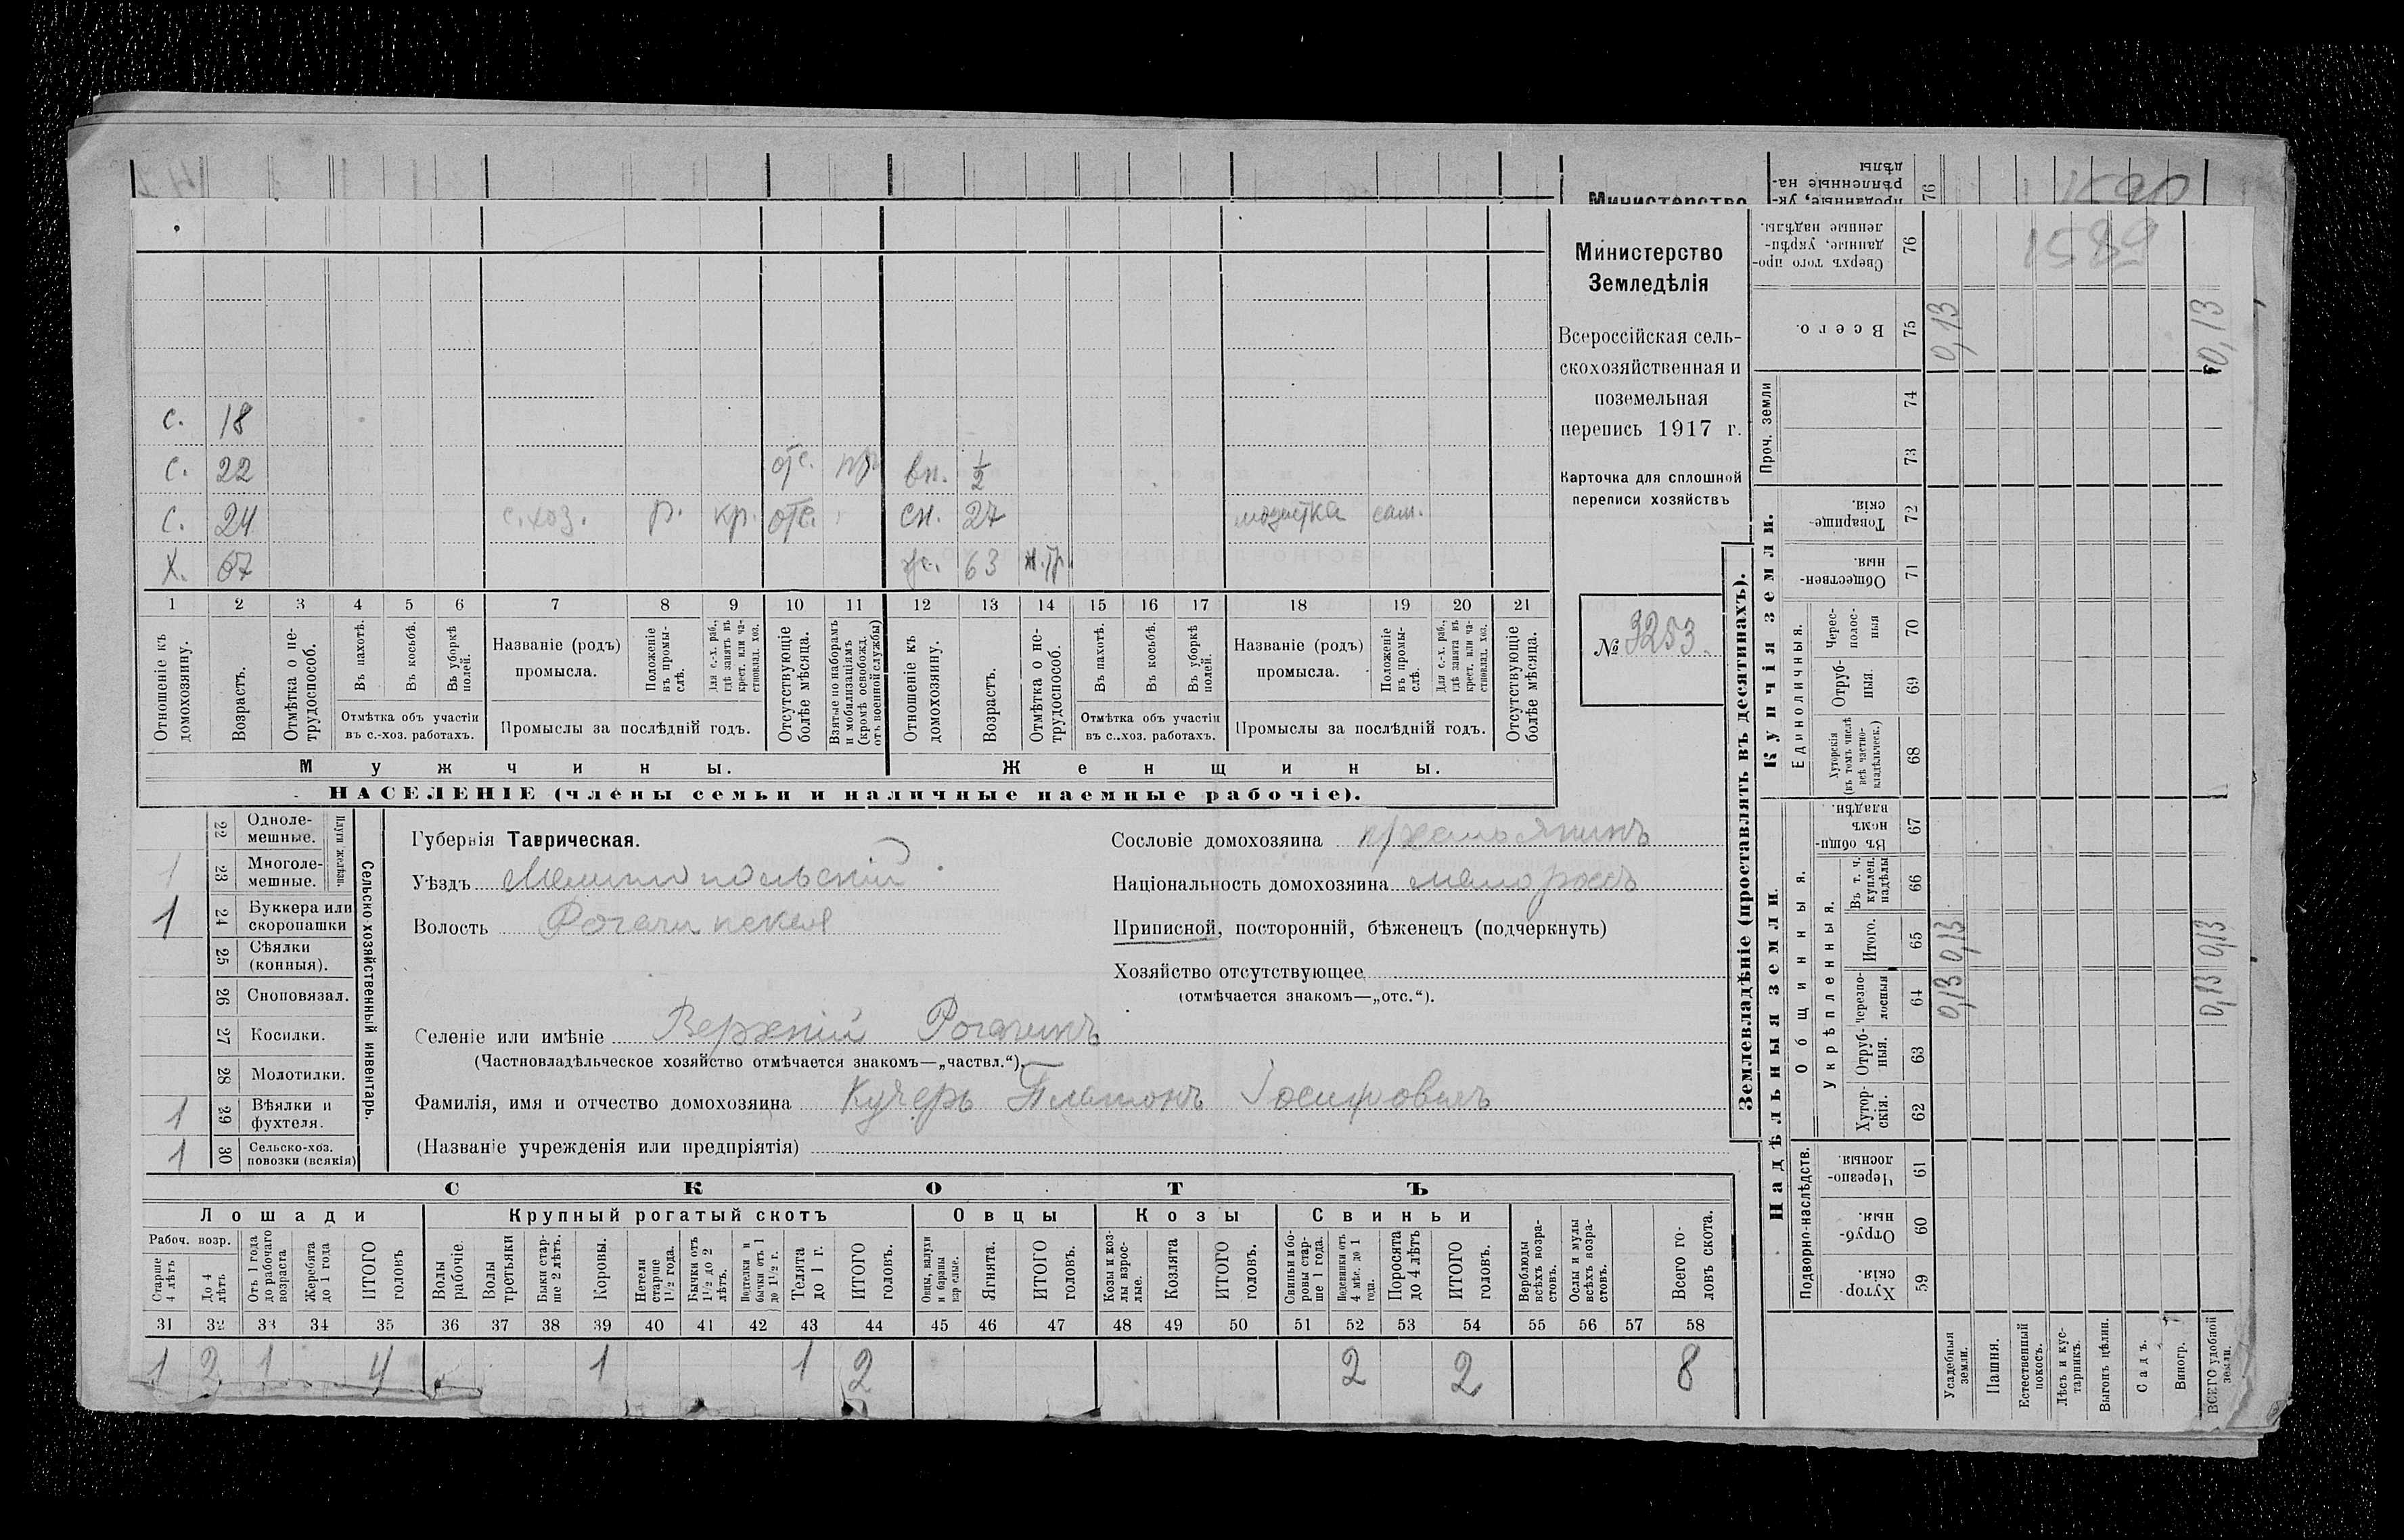 Министерство
дѣлы
1590
76
Министерство
Земледѣлія
Всероссійская сель-
скохозяйственная и
поземельная
перепись 1917 г.
Карточка для сплошной
переписи хозяйствъ
№ 3253.
1589
с. 18
с. 22 отс. вн. 1/2
с. 24 с. хоз. р. кр. отс. сн. 27 модистка сам.
х. 67 ж. 63
1 2 3 4 5 6 7 8 9 10 11 12 13 14 15 16 17 18 19 20 21
Отношеніе къ домохозяину.
Возрастъ.
Отмѣтка о не-трудоспособ.
Въ пахотѣ.
Въ косьбѣ.
Въ уборкѣ полей.
Отмѣтка объ участіи
въ с.-хоз. работахъ.
Названіе (родъ)
промысла.
Положеніе въ промы-слѣ.
Для с.-х. раб., гдѣ занятъ въ крест. или ча-стновлад. хоз.
Промыслы за послѣдній годъ.
Отсутствующіе болѣе мѣсяца.
Взятые по наборамъ и мобилизаціямъ (кромѣ освобожд. отъ военной службы)
Отношеніе къ домохозяину.
Возрастъ.
Отмѣтка о не-трудоспособ.
Въ пахотѣ.
Въ косьбѣ.
Въ уборкѣ полей.
Отмѣтка объ участіи
въ с.-хоз. работахъ.
Названіе (родъ)
промысла.
Положеніе въ промы-слѣ.
Для с.-х. раб., гдѣ занята въ крест. или ча-стновлад. хоз.
Промыслы за послѣдній годъ.
Отсутствующіе болѣе мѣсяца.
Мужчины. Женщины.
НАСЕЛЕНІЕ (члены семьи и наличные наемные рабочіе).
Сельско-хозяйственный инвентарь.
Плуги желѣзн.
22 Одноле-мешные.
1 23 Многоле-мешные.
1 24 Буккера или скоропашки
25 Сѣялки (конныя).
26 Сноповязал.
27 Косилки.
28 Молотилки.
1 29 Вѣялки и фухтеля.
1 30 Сельско-хоз. повозки (всякія)
Губернія Таврическая.
Уѣздъ Мелитопольскій
Волость Рогачинская
Селеніе или имѣніе Верхній Рогачикъ
(Частновладѣльческое хозяйство отмѣчается знакомъ—„частвл.“).
Фамилія, имя и отчество домохозяина Кучеръ Платонъ Іосифовичъ
(Названіе учрежденія или предпріятія)
Сословіе домохозяина крестьянинъ
Національность домохозяина малороссъ
Приписной, посторонній, бѣженецъ (подчеркнуть)
Хозяйство отсутствующее
(отмѣчается знакомъ—„отс.“).
СКОТЪ
Лошади Крупный рогатый скотъ Овцы Козы Свиньи
Рабоч. возр.
Старше 4 лѣтъ
До 4 лѣтъ
Отъ 1 года до рабочаго возраста
Жеребята до 1 года
ИТОГО головъ
Волы рабочіе.
Волы третьяки
Быки стар-ше 2 лѣтъ.
Коровы.
Нетели старше 1½ года.
Бычки отъ 1½ до 2 лѣтъ.
Подтелки и бычки отъ 1 до 1½ г.
Телята до 1 г.
ИТОГО головъ.
Овцы, валухи и бараны взрослые.
Ягнята.
ИТОГО головъ.
Козы и коз-лы взрос-лые.
Козлята
ИТОГО головъ.
Свиньи и бо-ровы стар-ше 1 года.
Подсвинки отъ 4 мѣс. до 1 года.
Поросята до 4 лѣтъ
ИТОГО головъ.
Верблюды всѣхъ возра-стовъ.
Ослы и мулы всѣхъ возра-стовъ.
Всего го-ловъ скота.
31 32 33 34 35 36 37 38 39 40 41 42 43 44 45 46 47 48 49 50 51 52 53 54 55 56 57 58
1 2 1 4 1 1 2 2 2 8
Землевладѣніе (проставлять въ десятинахъ).
Купчія земли.
Надѣльныя земли.
Сверхъ того про-данные, укрѣп-ленные надѣлы. 76
Всего. 75 0,13 0,13
Проч. земли 74
73
Товарище-скія. 72
Обществен-ныя. 71
Единоличныя.
Черес-полос-ныя 70
Отруб-ныя. 69
Хуторскія (въ томъ числѣ всѣ частно-владѣльческ.) 68
Общинныя.
Въ общин-номъ владѣн. 67
Укрѣпленныя.
Въ т. ч. куплен. надѣлы 66
Итого. 65 0,13 0,13
Черезпо-лосныя 64 0,13 0,13
Отруб-ныя. 63
Хутор-скія. 62
Подворно-наслѣдств.
Черезпо-лосныя. 61
Отруб-ныя. 60
Хутор-скія. 59
Усадебныя земли.
Пашня.
Естественный покосъ.
Лѣсъ и кус-тарникъ.
Выгонъ цѣлин.
Садъ.
Виногр.
ВСЕГО удобной земли.